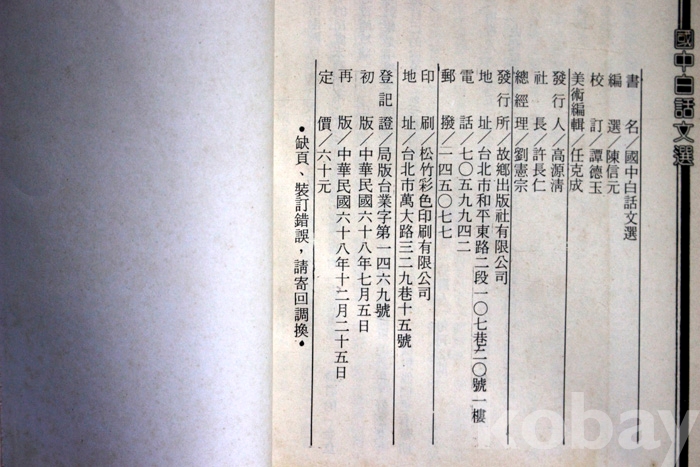 國中白話文選
書名/國中白話文選
編選/陳信元
校訂/譚德玉
美術編輯/任克成
發行人/高源清
社長/許長仁
總經理/劉憲宗
發行所/故鄉出版社有限公司
地址/台北市和平東路二段一〇七巷二〇號一樓
電話/七〇五九九四二
郵撥/一四五〇七七
印刷/松竹彩色印刷有限公司
地址/台北市萬大路三二九巷十五號
登記證/局版台業字第一四六九號
初版/中華民國六十八年七月五日
再版/中華民國六十八年十二月二十五日
定價/六十元
•缺頁、裝訂錯誤,請寄回調換•
kobay